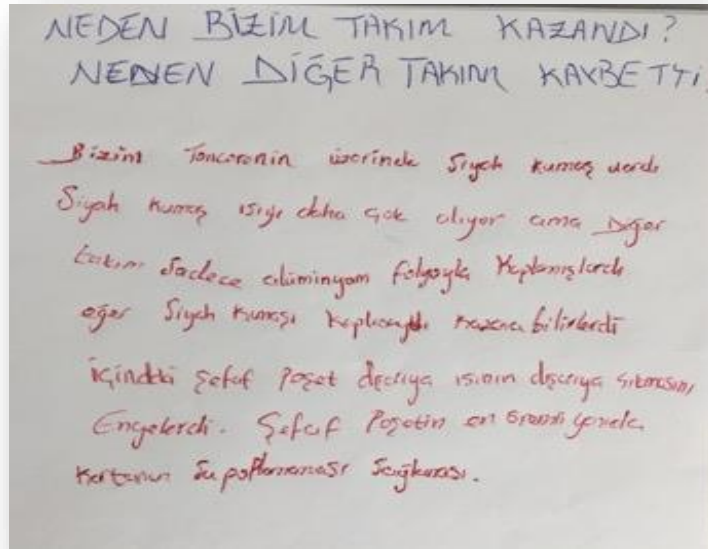 NEDEN BİZİM TAKIM KAZANDI?
NEDEN DİĞER TAKIM KAYBETTİ
Bizim Tencerenin üzerinde Siyah kumaş vardı
Siyah kumaş ışığı daha çok alıyor ama Diğer
takım Sadece alüminyam folyoyla Kaplamışlardı
eğer Siyah Kumaşı Kaplasaydı Kazana bilirlerdi
içindeki Şefaf Poşet dışarıya ısının dışarıya
Engelerdi. Şefaf Poşetin en önemli
Kartonun Sağlaması.